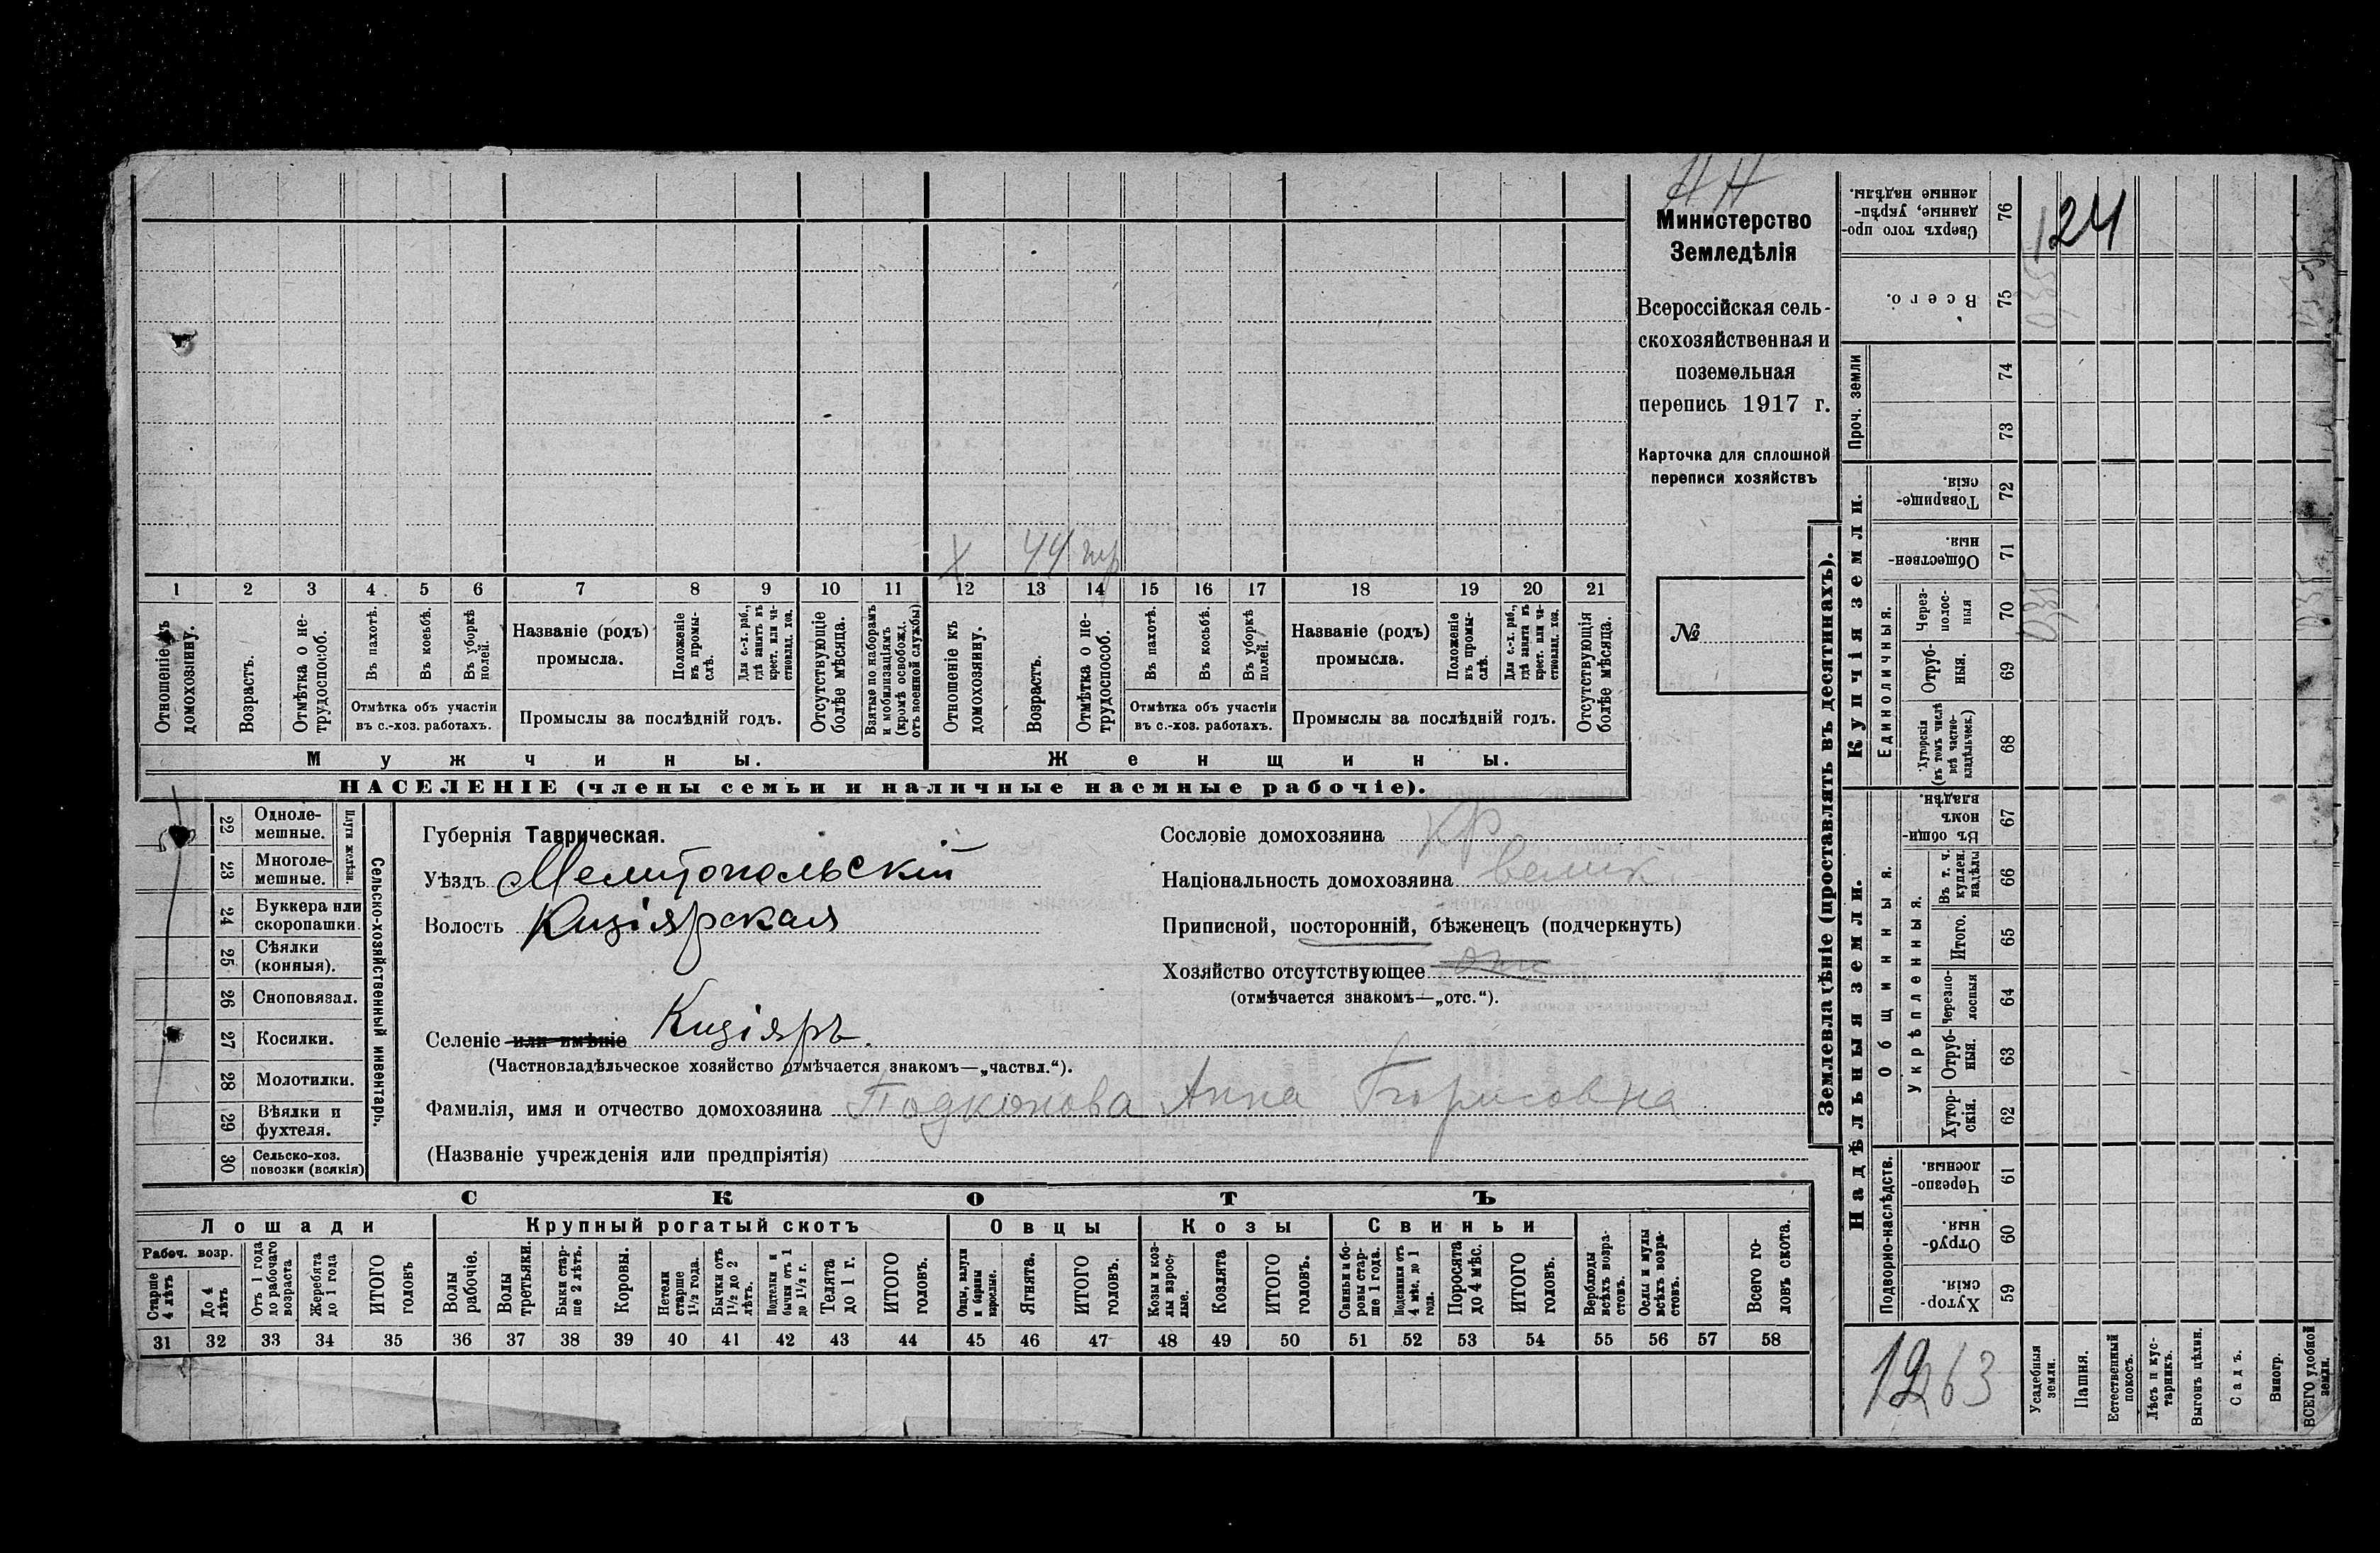 НН
Министерство
Земледѣлія
Всероссійская сель-
скохозяйственная и
поземельная
перепись 1917 г.
Карточка для сплошной
переписи хозяйствъ
№
Х 44
1 2 3 4 5 6 7 8 9 10 11 12 13 14 15 16 17 18 19 20 21
Отношеніе къ домохозяину.
Возрастъ.
Отмѣтка о не-трудоспособ.
Въ пахотѣ.
Въ косьбѣ.
Въ уборкѣ полей.
Отмѣтка объ участіи
въ с.-хоз. работахъ.
Названіе (родъ)
промысла.
Положеніе въ промы-слѣ.
Для с.-х. раб., гдѣ занятъ въ крест. или ча-стновлад. хоз.
Промыслы за послѣдній годъ.
Отсутствующіе болѣе мѣсяца.
Взятые по наборамъ и мобилизаціямъ (кромѣ освобожд. отъ военной службы)
Отношеніе къ домохозяину.
Возрастъ.
Отмѣтка о не-трудоспособ.
Въ пахотѣ.
Въ косьбѣ.
Въ уборкѣ полей.
Отмѣтка объ участіи
въ с.-хоз. работахъ.
Названіе (родъ)
промысла.
Положеніе въ промы-слѣ.
Для с.-х. раб., гдѣ занята въ крест. или ча-стновлад. хоз.
Промыслы за послѣдній годъ.
Отсутствующія болѣе мѣсяца.
Мужчины.
Женщины.
НАСЕЛЕНІЕ (члены семьи и наличные наемные рабочіе).
22 Одноле-мешные.
23 Многоле-мешные.
Плуги желѣзн.
24 Буккера или скоропашки.
25 Сѣялки (конныя).
26 Сноповязал.
27 Косилки.
28 Молотилки.
29 Вѣялки и фухтеля.
30 Сельско-хоз. повозки (всякія)
Сельско-хозяйственный инвентарь.
Губернія Таврическая.
Уѣздъ Мелитопольскій
Волость Кизіярская
Селеніе или имѣніе Кизіяръ.
(Частновладѣльческое хозяйство отмѣчается знакомъ—„частвл.“).
Фамилія, имя и отчество домохозяина Подкопова Анна Борисовна
(Названіе учрежденія или предпріятія)
Сословіе домохозяина кр
Національность домохозяина велик.
Приписной, посторонній, бѣженецъ (подчеркнуть)
Хозяйство отсутствующее
(отмѣчается знакомъ—„отс.“).
СКОТЪ
Лошади
Крупный рогатый скотъ
Овцы
Козы
Свиньи
Рабоч. возр.
Старше 4 лѣтъ
До 4 лѣтъ
Отъ 1 года до рабочаго возраста
Жеребята до 1 года
ИТОГО головъ
Волы рабочіе.
Волы третьяки.
Быки стар-ше 2 лѣтъ.
Коровы.
Нетели старше 1½ года.
Бычки отъ 1½ до 2 лѣтъ.
Подтелки и бычки отъ 1 до 1½ г.
Телята до 1 г.
ИТОГО головъ.
Овцы, валухи и бараны взрослые.
Ягнята.
ИТОГО головъ.
Козы и коз-лы взрос-лые.
Козлята
ИТОГО головъ.
Свиньи и бо-ровы стар-ше 1 года.
Подсвинки отъ 4 мѣс. до 1 года.
Поросята до 4 мѣс.
ИТОГО головъ.
Верблюды всѣхъ возра-стовъ.
Ослы и мулы всѣхъ возра-стовъ.
Всего го-ловъ скота.
31 32 33 34 35 36 37 38 39 40 41 42 43 44 45 46 47 48 49 50 51 52 53 54 55 56 57 58
Землевладѣніе (проставлять въ десятинахъ).
Купчія земли.
Надѣльныя земли.
Сверхъ того про-данные, укрѣп-ленные надѣлы. 76
124
Всего. 75
Проч. земли
74
73
Товарище-скія. 72
Обществен-ныя. 71
Единоличныя.
Через-полос-ныя 70
Отруб-ныя. 69
Хуторскія (въ томъ числѣ всѣ частно-владѣльческ.) 68
Общинныя.
Въ общи-номъ владѣн. 67
Укрѣпленныя.
Въ т. ч. куплен. надѣлы 66
Итого. 65
Черезпо-лосныя 64
Отруб-ныя. 63
Хутор-скія. 62
Подворно-наслѣдств.
Черезпо-лосныя. 61
Отруб-ныя. 60
Хутор-скія. 59
1263
Усадебныя земли.
Пашня.
Естественный покосъ.
Лѣсъ и кус-тарникъ.
Выгонъ цѣлин.
Садъ.
Виногр.
ВСЕГО удобной земли.